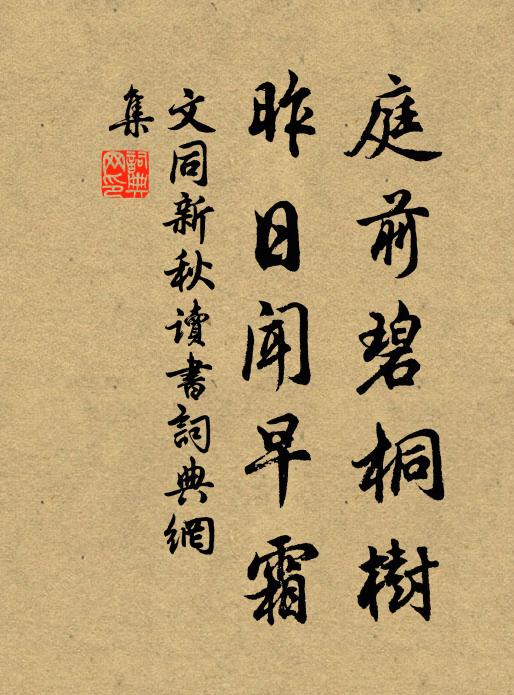 庭前碧桐樹
昨日聞早霜
文同新秋讀書詞典網
集
詞典網印